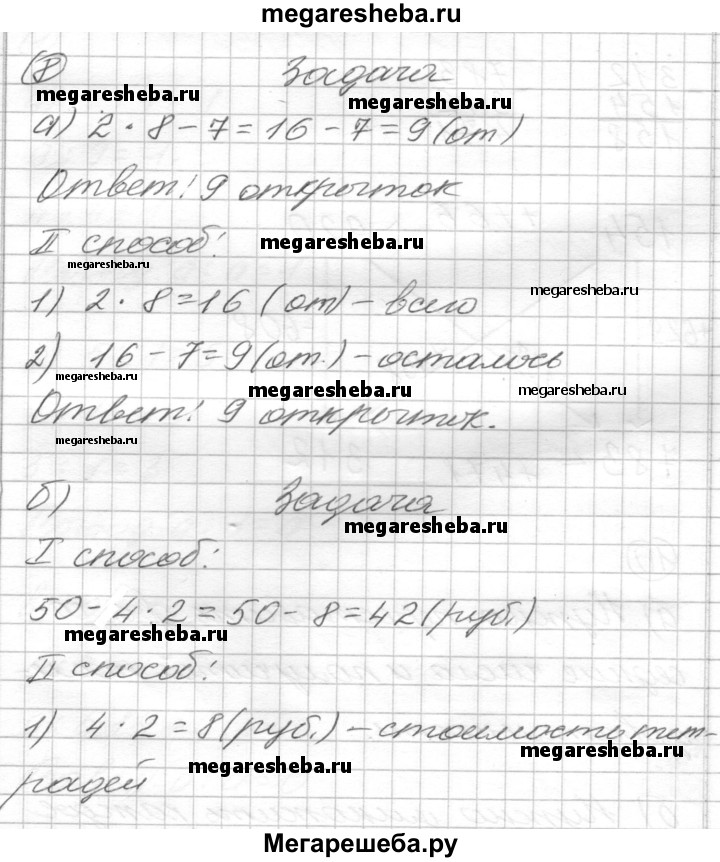 megaresheba.ru
Р Задача
megaresheba.ru megaresheba.ru
а) 2 · 8 - 7 = 16 - 7 = 9 (от)
Ответ: 9 открыток
II способ: megaresheba.ru
megaresheba.ru
1) 2 · 8 = 16 (от) - всего megaresheba.ru
2) 16 - 7 = 9 (от.) - осталось
megaresheba.ru megaresheba.ru megaresheba.ru
Ответ: 9 открыток.
megaresheba.ru
б) Задача
megaresheba.ru
I способ:
50 - 4 · 2 = 50 - 8 = 42 (руб.)
megaresheba.ru
II способ:
1) 4 · 2 = 8 (руб.) - стоимость тет-
megaresheba.ru
радей megaresheba.ru
Мегарешеба.ру